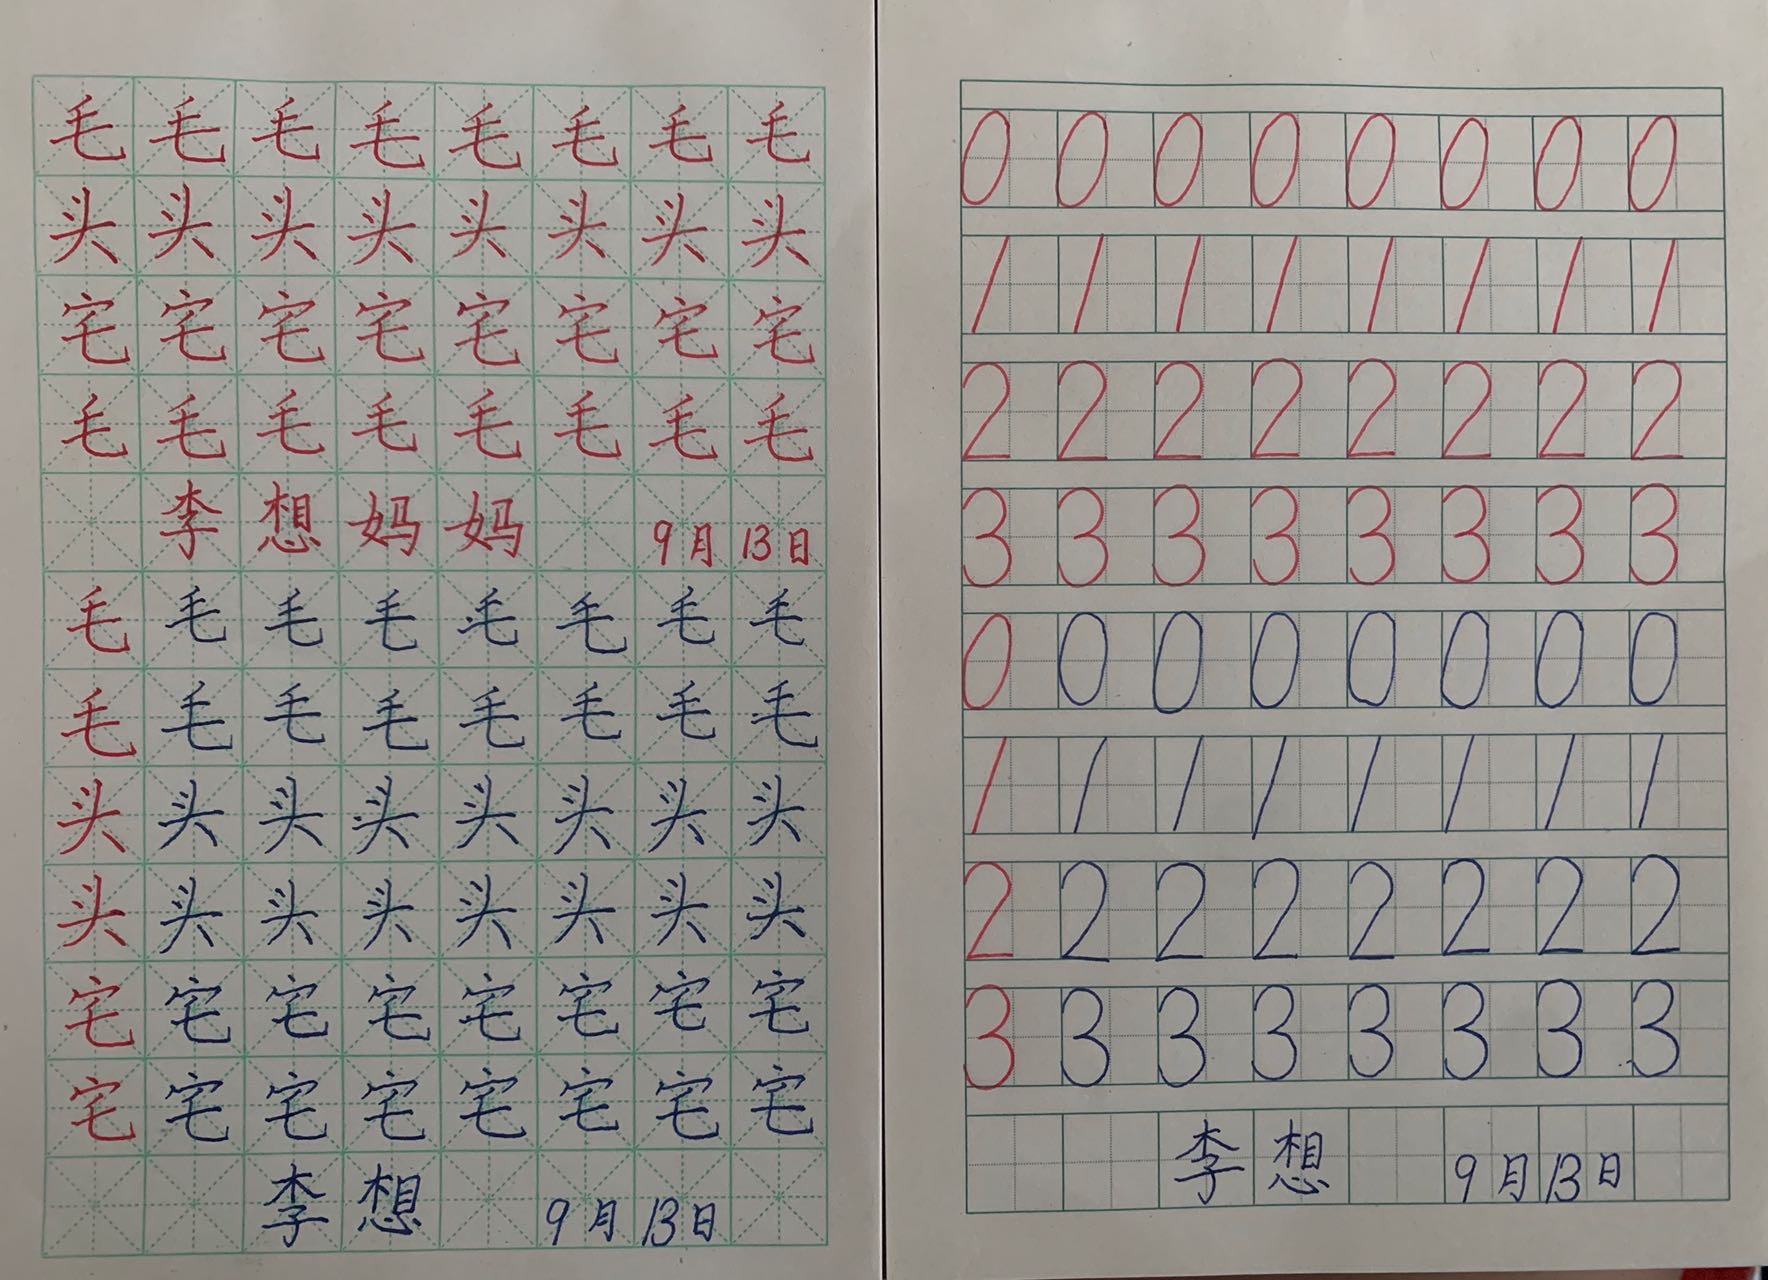 毛毛毛毛毛毛毛毛
头头头头头头头头
宅宅宅宅宅宅宅宅
毛毛毛毛毛毛毛毛
李想妈妈 9月13日
毛毛毛毛毛毛毛毛
毛毛毛毛毛毛毛毛
头头头头头头头头
头头头头头头头头
宅宅宅宅宅宅宅宅
宅宅宅宅宅宅宅宅
李想 9月13日
0 0 0 0 0 0 0 0
1 1 1 1 1 1 1 1
2 2 2 2 2 2 2 2
3 3 3 3 3 3 3 3
0 0 0 0 0 0 0 0
1 1 1 1 1 1 1 1
2 2 2 2 2 2 2 2
3 3 3 3 3 3 3 3
李想 9月13日